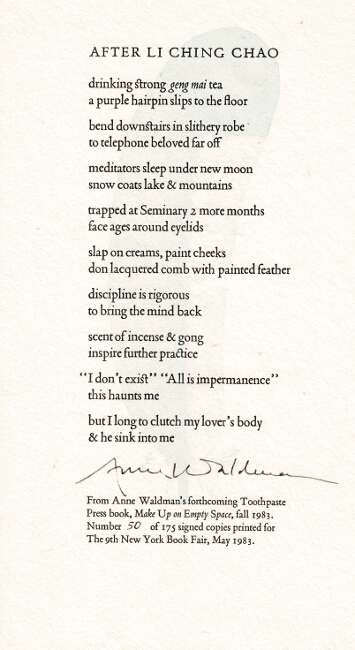 AFTER LI CHING CHAO
drinking strong geng mai tea
a purple hairpin slips to the floor
bend downstairs in slithery robe
to telephone beloved far off
meditators sleep under new moon
snow coats lake & mountains
trapped at Seminary 2 more months
face ages around eyelids
slap on creams, paint cheeks
don lacquered comb with painted feather
discipline is rigorous
to bring the mind back
scent of incense & gong
inspire further practice
"I don't exist" "All is impermanence"
this haunts me
but I long to clutch my lover's body
& he sink into me
Anne Waldman
From Anne Waldman's forthcoming Toothpaste
Press book, Make Up on Empty Space, fall 1983.
Number 50 of 175 signed copies printed for
The 9th New York Book Fair, May 1983.